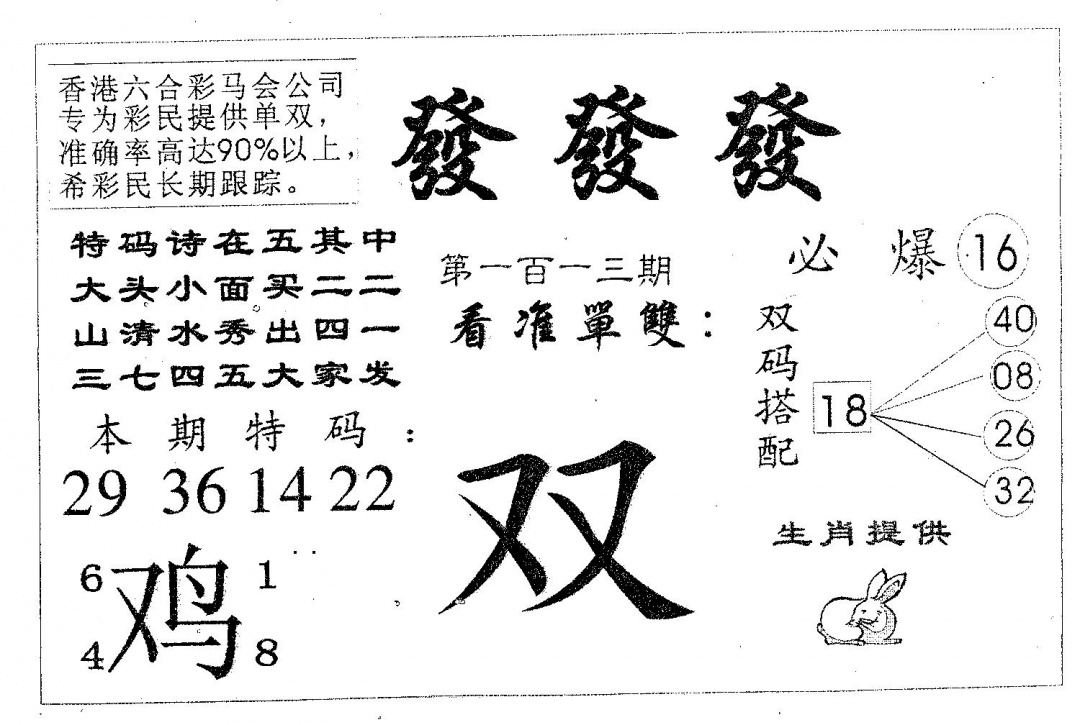 香港六合彩马会公司
专为彩民提供单双，
准确率高达90%以上，
希彩民长期跟踪。
發發發
特码诗在五其中
大头小面买二二
山清水秀出四一
三七四五大家发
本期特码：
29 36 14 22
6 1
鸡
4 8
第一百一三期
看准單雙：
双
必爆 16
双码搭配
18
40
08
26
32
生肖提供